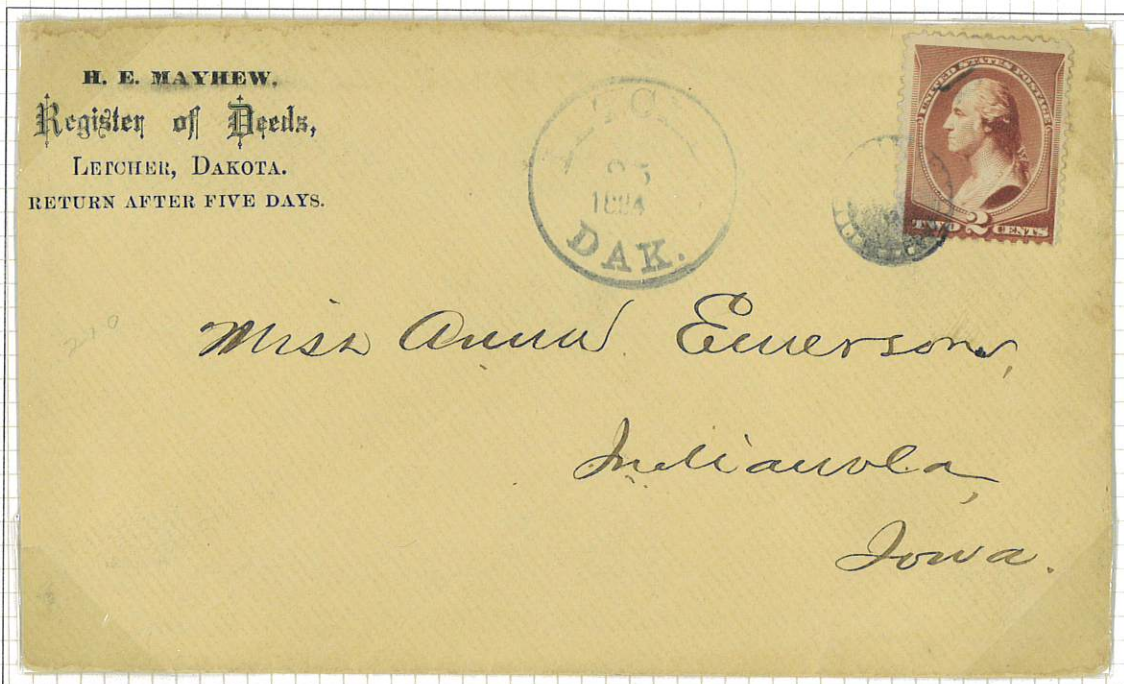 H. E. MAYHEW.
Register of Deeds,
LETCHER, DAKOTA.
RETURN AFTER FIVE DAYS.
1884
DAK.
UNITED STATES POSTAGE
TWO 2 CENTS
210
Miss Anna Emerson,
Indianola,
Iowa.